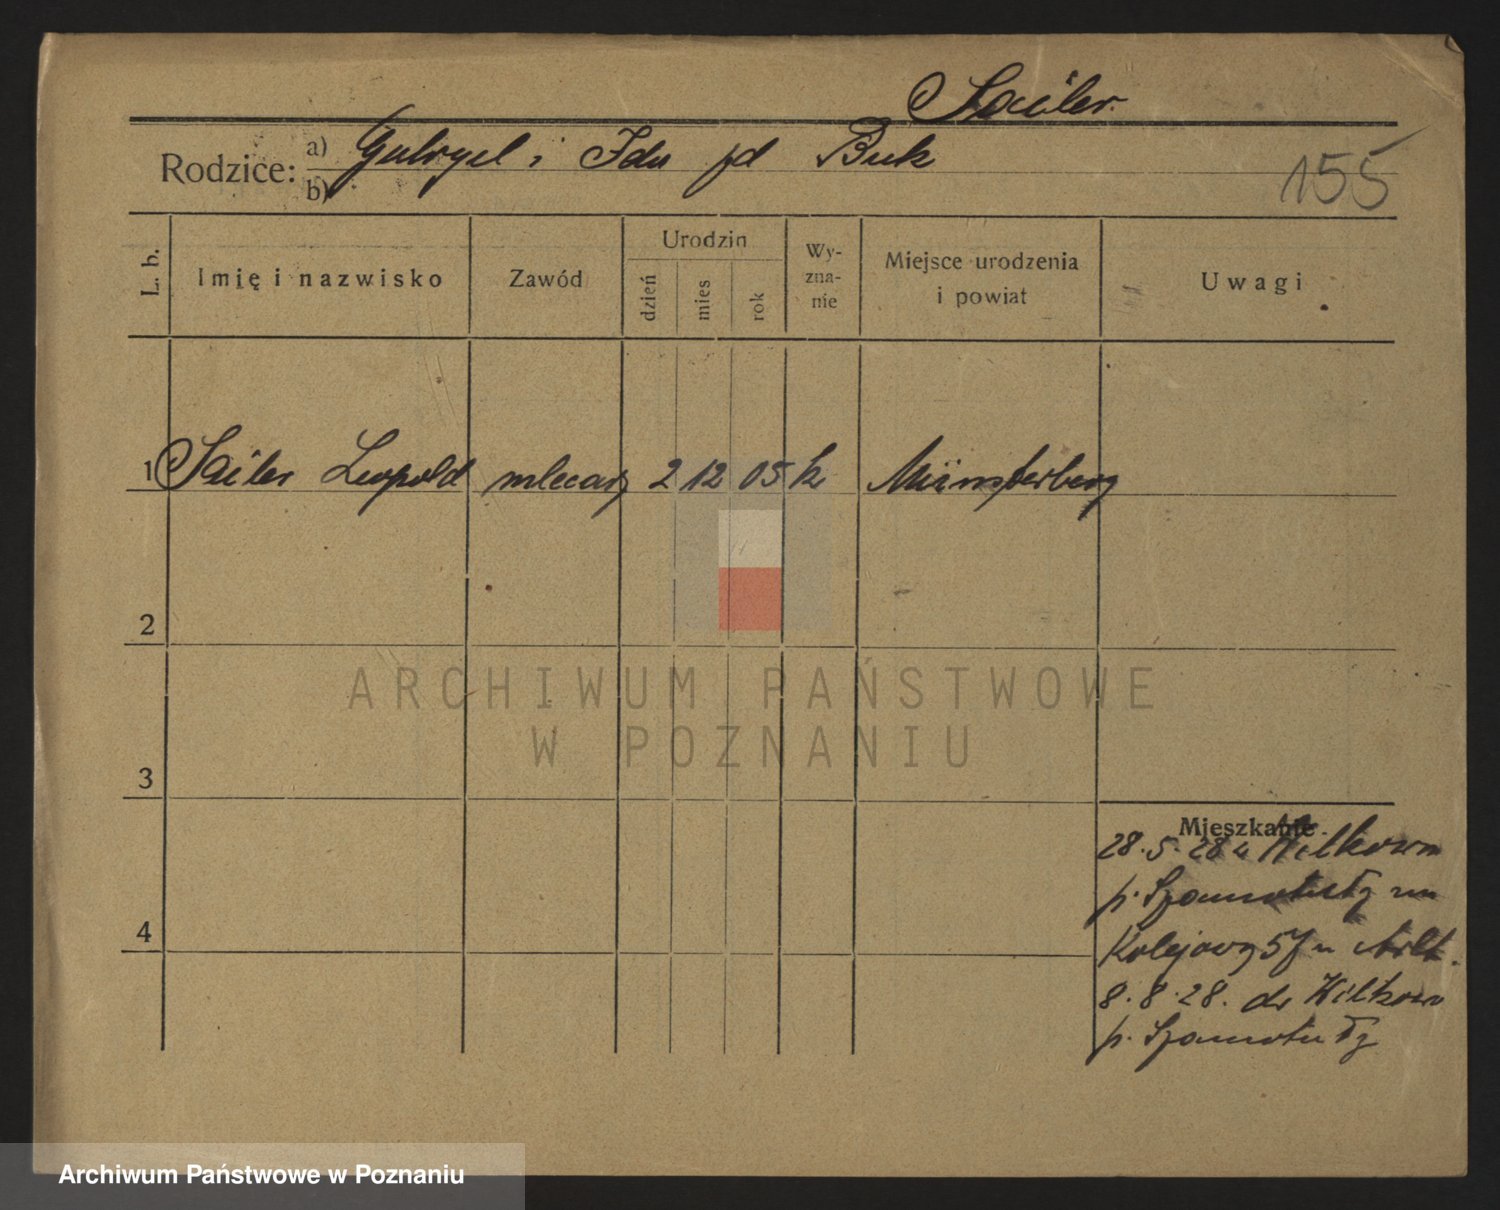 Sailer
Rodzice: a) Gabryel i Ida pd Buk
b)
155
L. b.
Imię i nazwisko
Zawód
Urodzin
dzień
mies
rok
Wy-
zna-
nie
Miejsce urodzenia
i powiat
Uwagi
1 Sailer Leopold mlecarz 2 12 05 k Münsterberg
2
ARCHIWUM PAŃSTWOWE
W POZNANIU
3
Mieszkanie
28.5.28 z Wilkowa
p. Szamotuły na
Kolejowy 57
8.8.28. do Wilkowo
p. Szamotuły
4
Archiwum Państwowe w Poznaniu